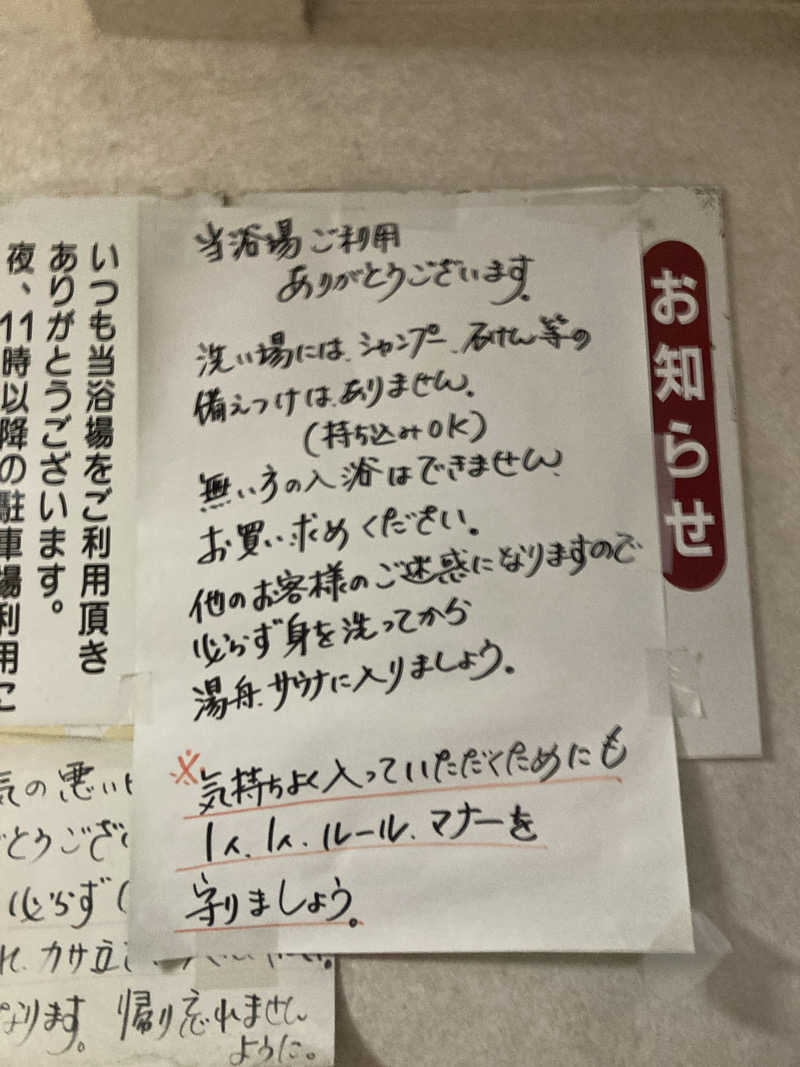 お知らせ
当浴場ご利用
ありがとうございます。
洗い場には、シャンプー、石けん等の
備えつけは、ありません。
(持ち込みOK)
無い方の入浴はできません、
お買い求めください。
他のお客様のご迷惑になりますので
必らず身を洗ってから
湯舟、サウナに入りましょう。
※気持ちよく入っていただくためにも
1人、1人、ルール、マナーを
守りましょう。
いつも当浴場をご利用頂き
ありがとうございます。
夜、11時以降の駐車場利用
気の悪い
とうござ
必らず
カサ立
なります。帰り忘れません
ように。